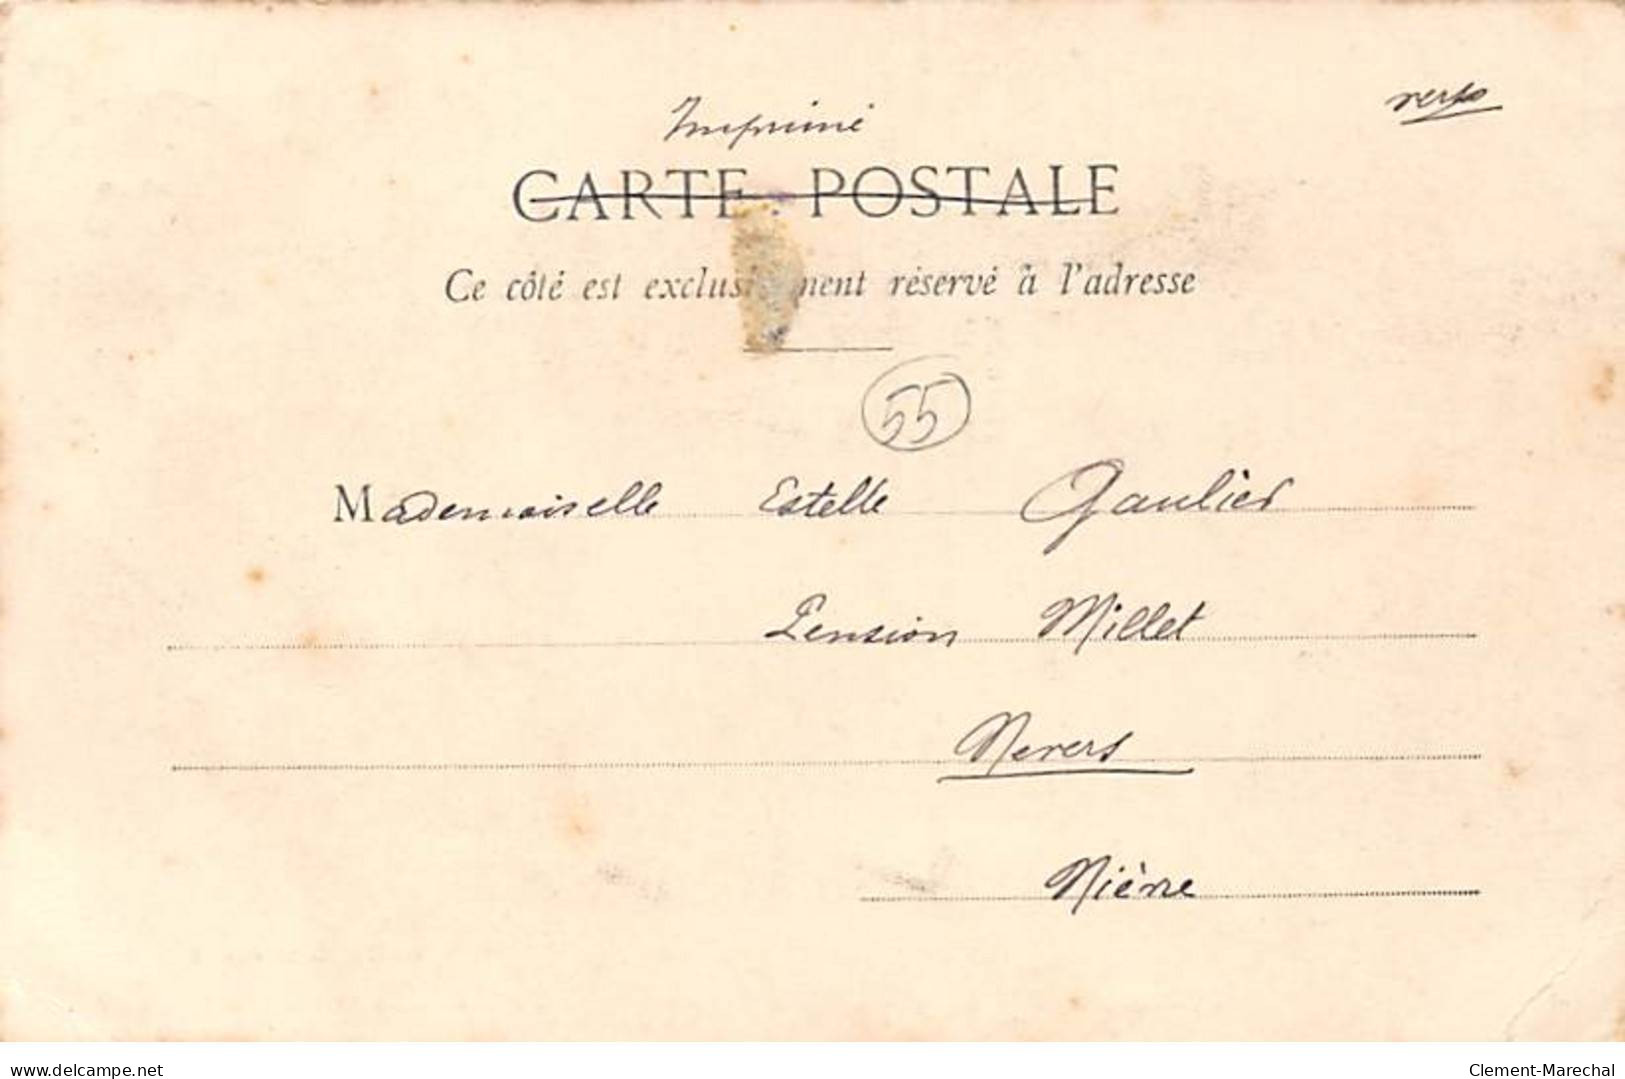 verso
Imprimé
CARTE POSTALE
Ce côté est exclusivement réservé à l'adresse
55
Mademoiselle Estelle Gaulier
Pension Millet
Nevers
Nièvre
delcampe.net
Clement-Marechal